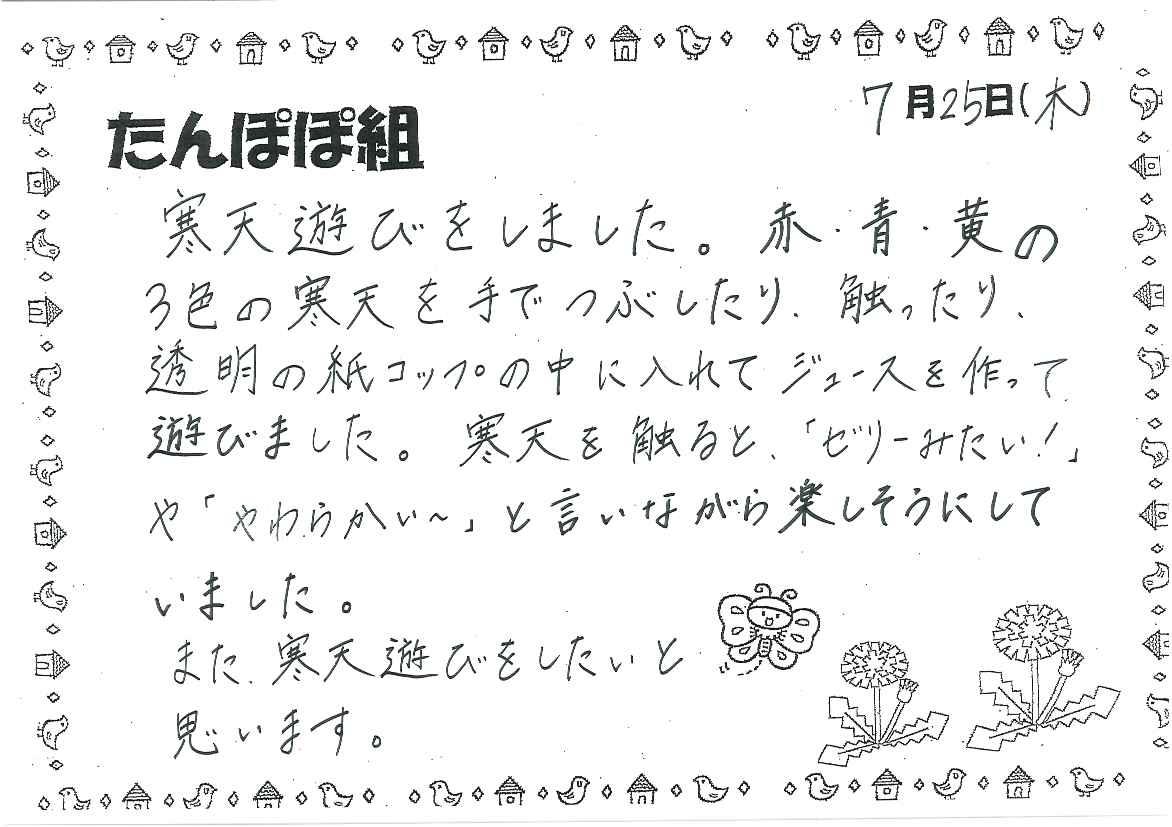 7月25日(木)
たんぽぽ組
寒天遊びをしました。赤・青・黄の
3色の寒天を手でつぶしたり、触ったり、
透明の紙コップの中に入れてジュースを作って
遊びました。寒天を触ると、「ゼリーみたい!」
や「やわらかい~」と言いながら楽しそうにして
いました。
また、寒天遊びをしたいと
思います。